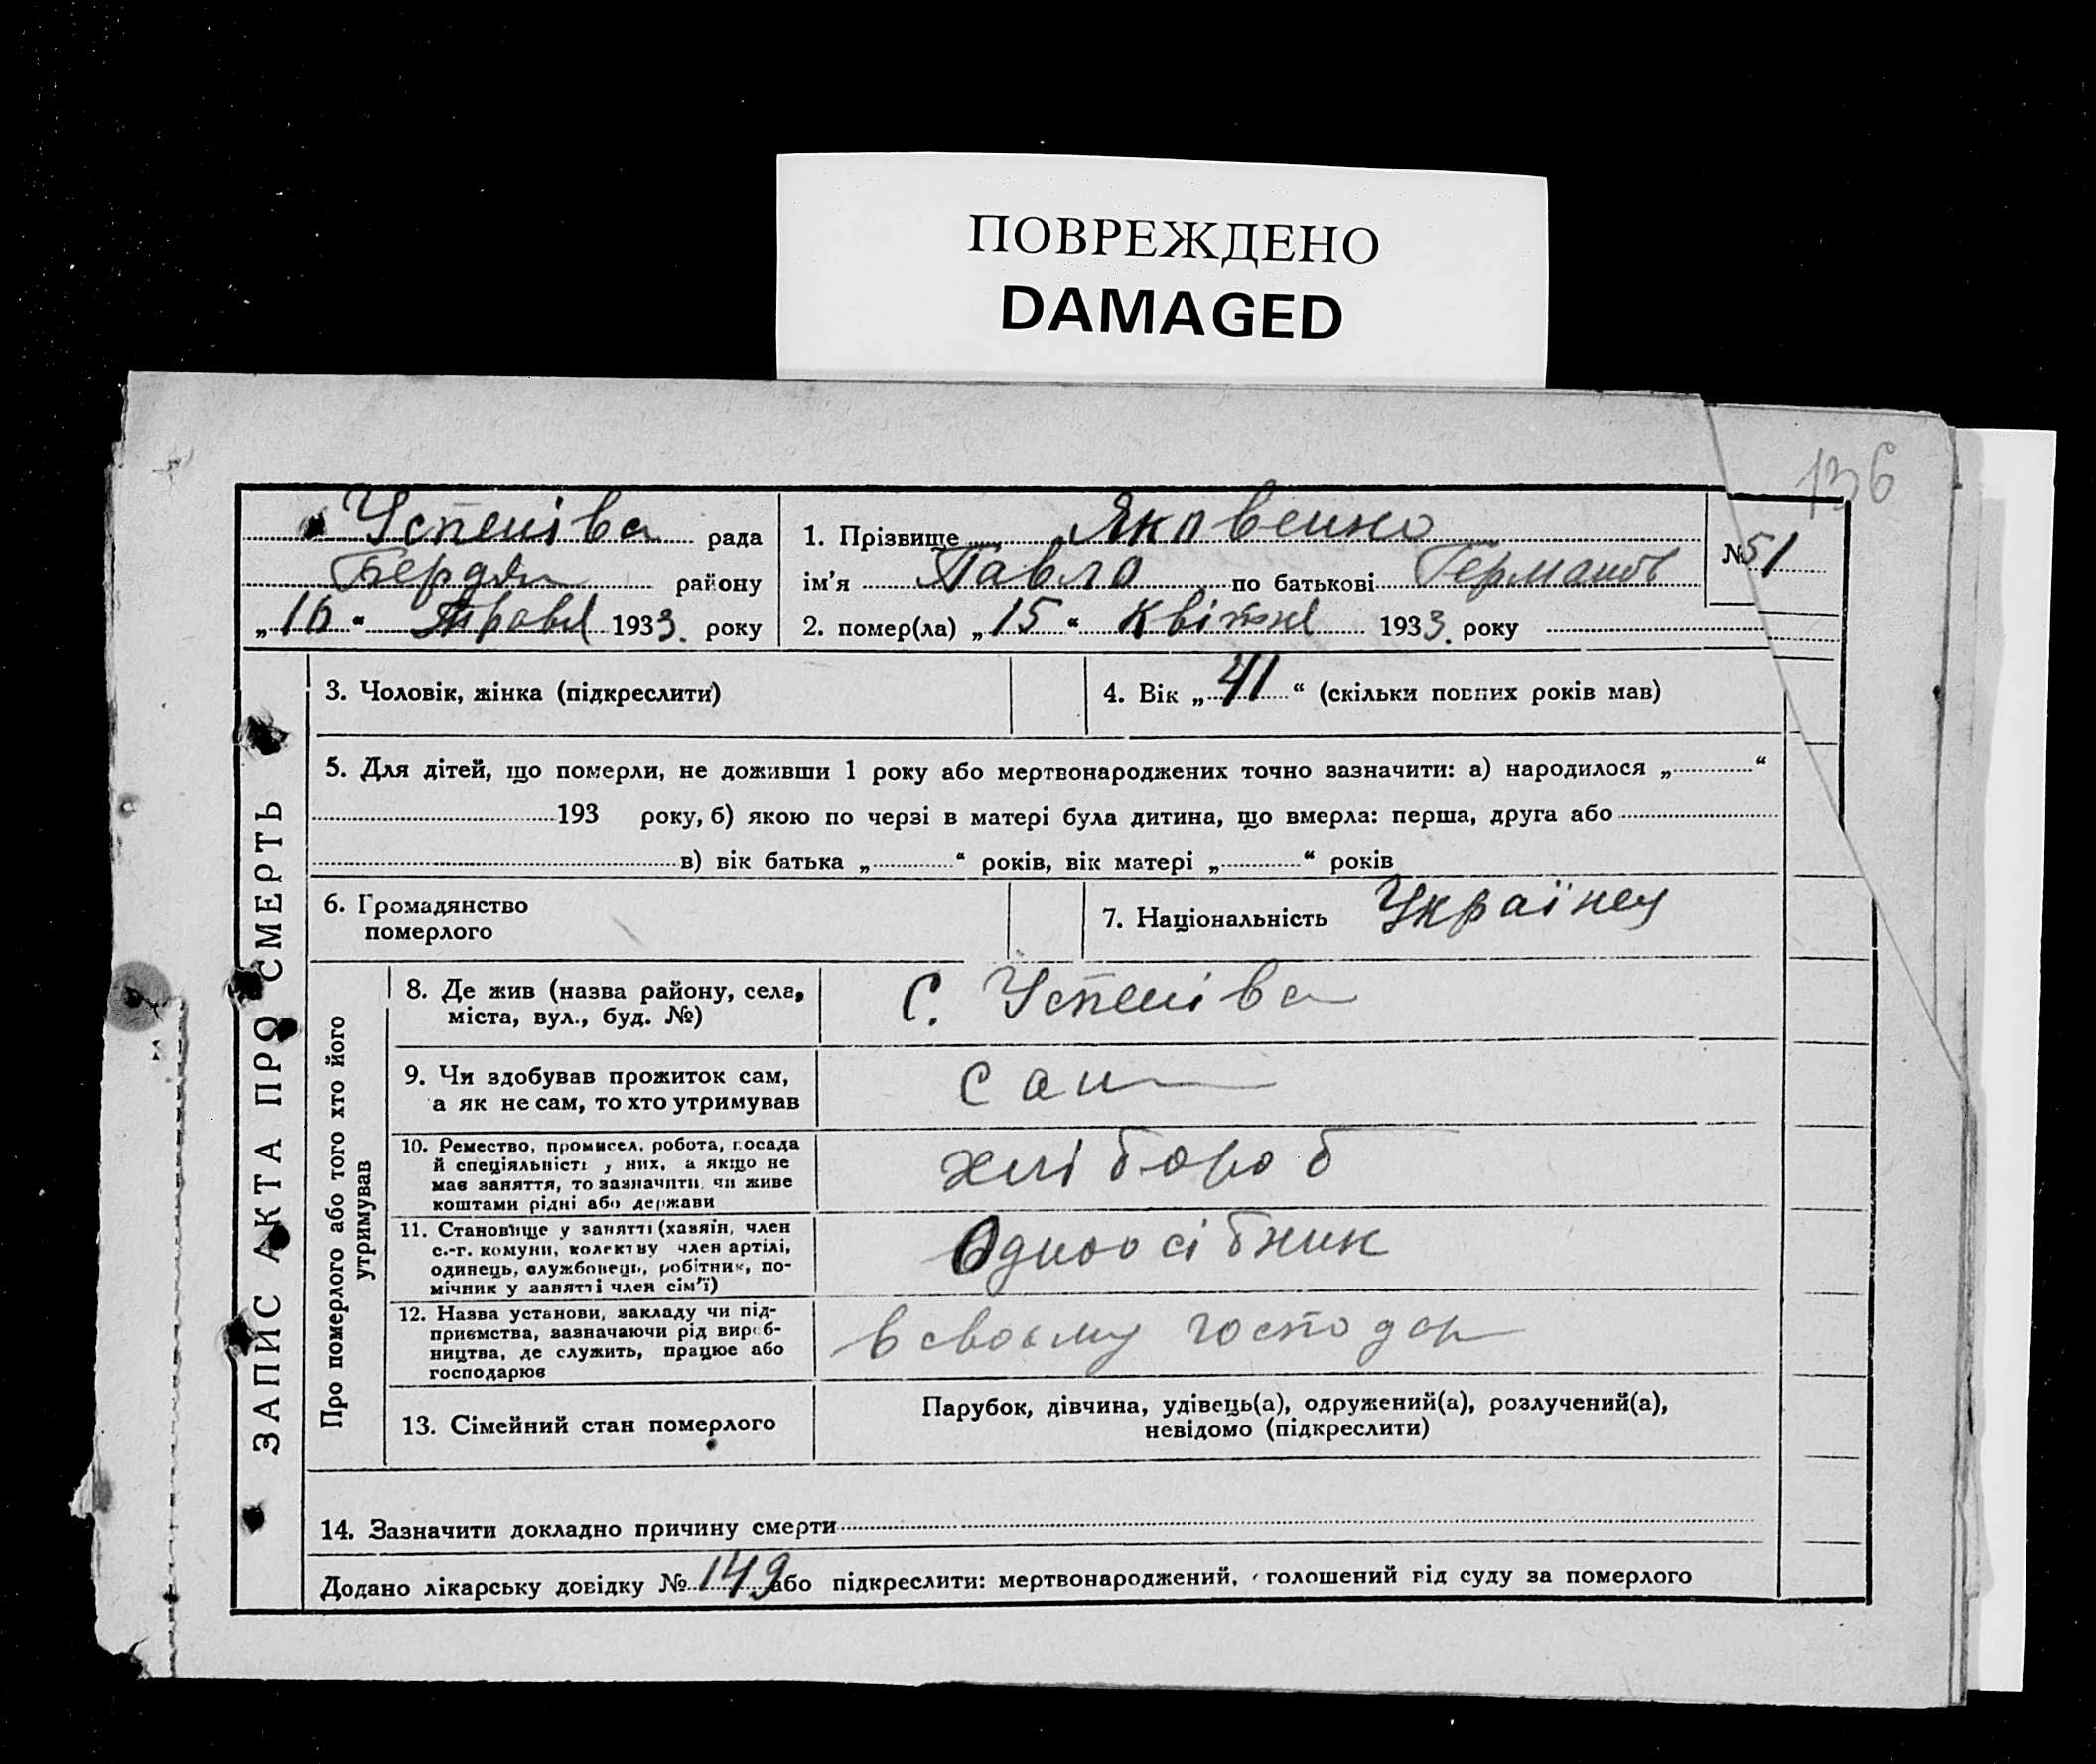 ПОВРЕЖДЕНО
DAMAGED
136
Успенівa рада
Бердян району
„16“ Травня 1933. року
1. Прізвище Яковенко
ім’я Павло по батькові Германов
2. помер(ла) „15“ Квітня 1933. року
№ 51
ЗАПИС АКТА ПРО СМЕРТЬ
3. Чоловік, жінка (підкреслити)
4. Вік „41“ (скільки повних років мав)
5. Для дітей, що померли, не доживши 1 року або мертвонароджених точно зазначити: а) народилося „ “
193 року, б) якою по черзі в матері була дитина, що вмерла: перша, друга або
в) вік батька „ “ років, вік матері „ “ років
6. Громадянство
померлого
7. Національність Українец
Про померлого або того хто його
утримував
8. Де жив (назва району, села,
міста, вул., буд. №)
С. Успеніва
9. Чи здобував прожиток сам,
а як не сам, то хто утримував
Сам
10. Ремество, промисел, робота, посада
й спеціяльність у них, а якщо не
має заняття, то зазначити, чи живе
коштами рідні або держави
хлібороб
11. Становище у занятті (хазяїн, член
с.-г. комуни, колективу член артілі,
одинець, службовець, робітник, по-
мічник у занятті член сім’ї)
Одноосібник
12. Назва установи, закладу чи під-
приємства, зазначаючи рід вироб-
ництва, де служить, працює або
господарює
в своєму господар
13. Сімейний стан померлого
Парубок, дівчина, удівець(а), одружений(а), розлучений(а),
невідомо (підкреслити)
14. Зазначити докладно причину смерти
Додано лікарську довідку № 149 або підкреслити: мертвонароджений, голошений від суду за померлого